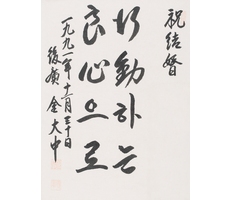 祝結婚
行動하는
良心으로
一九九一年十一月三十日
後廣 金大中